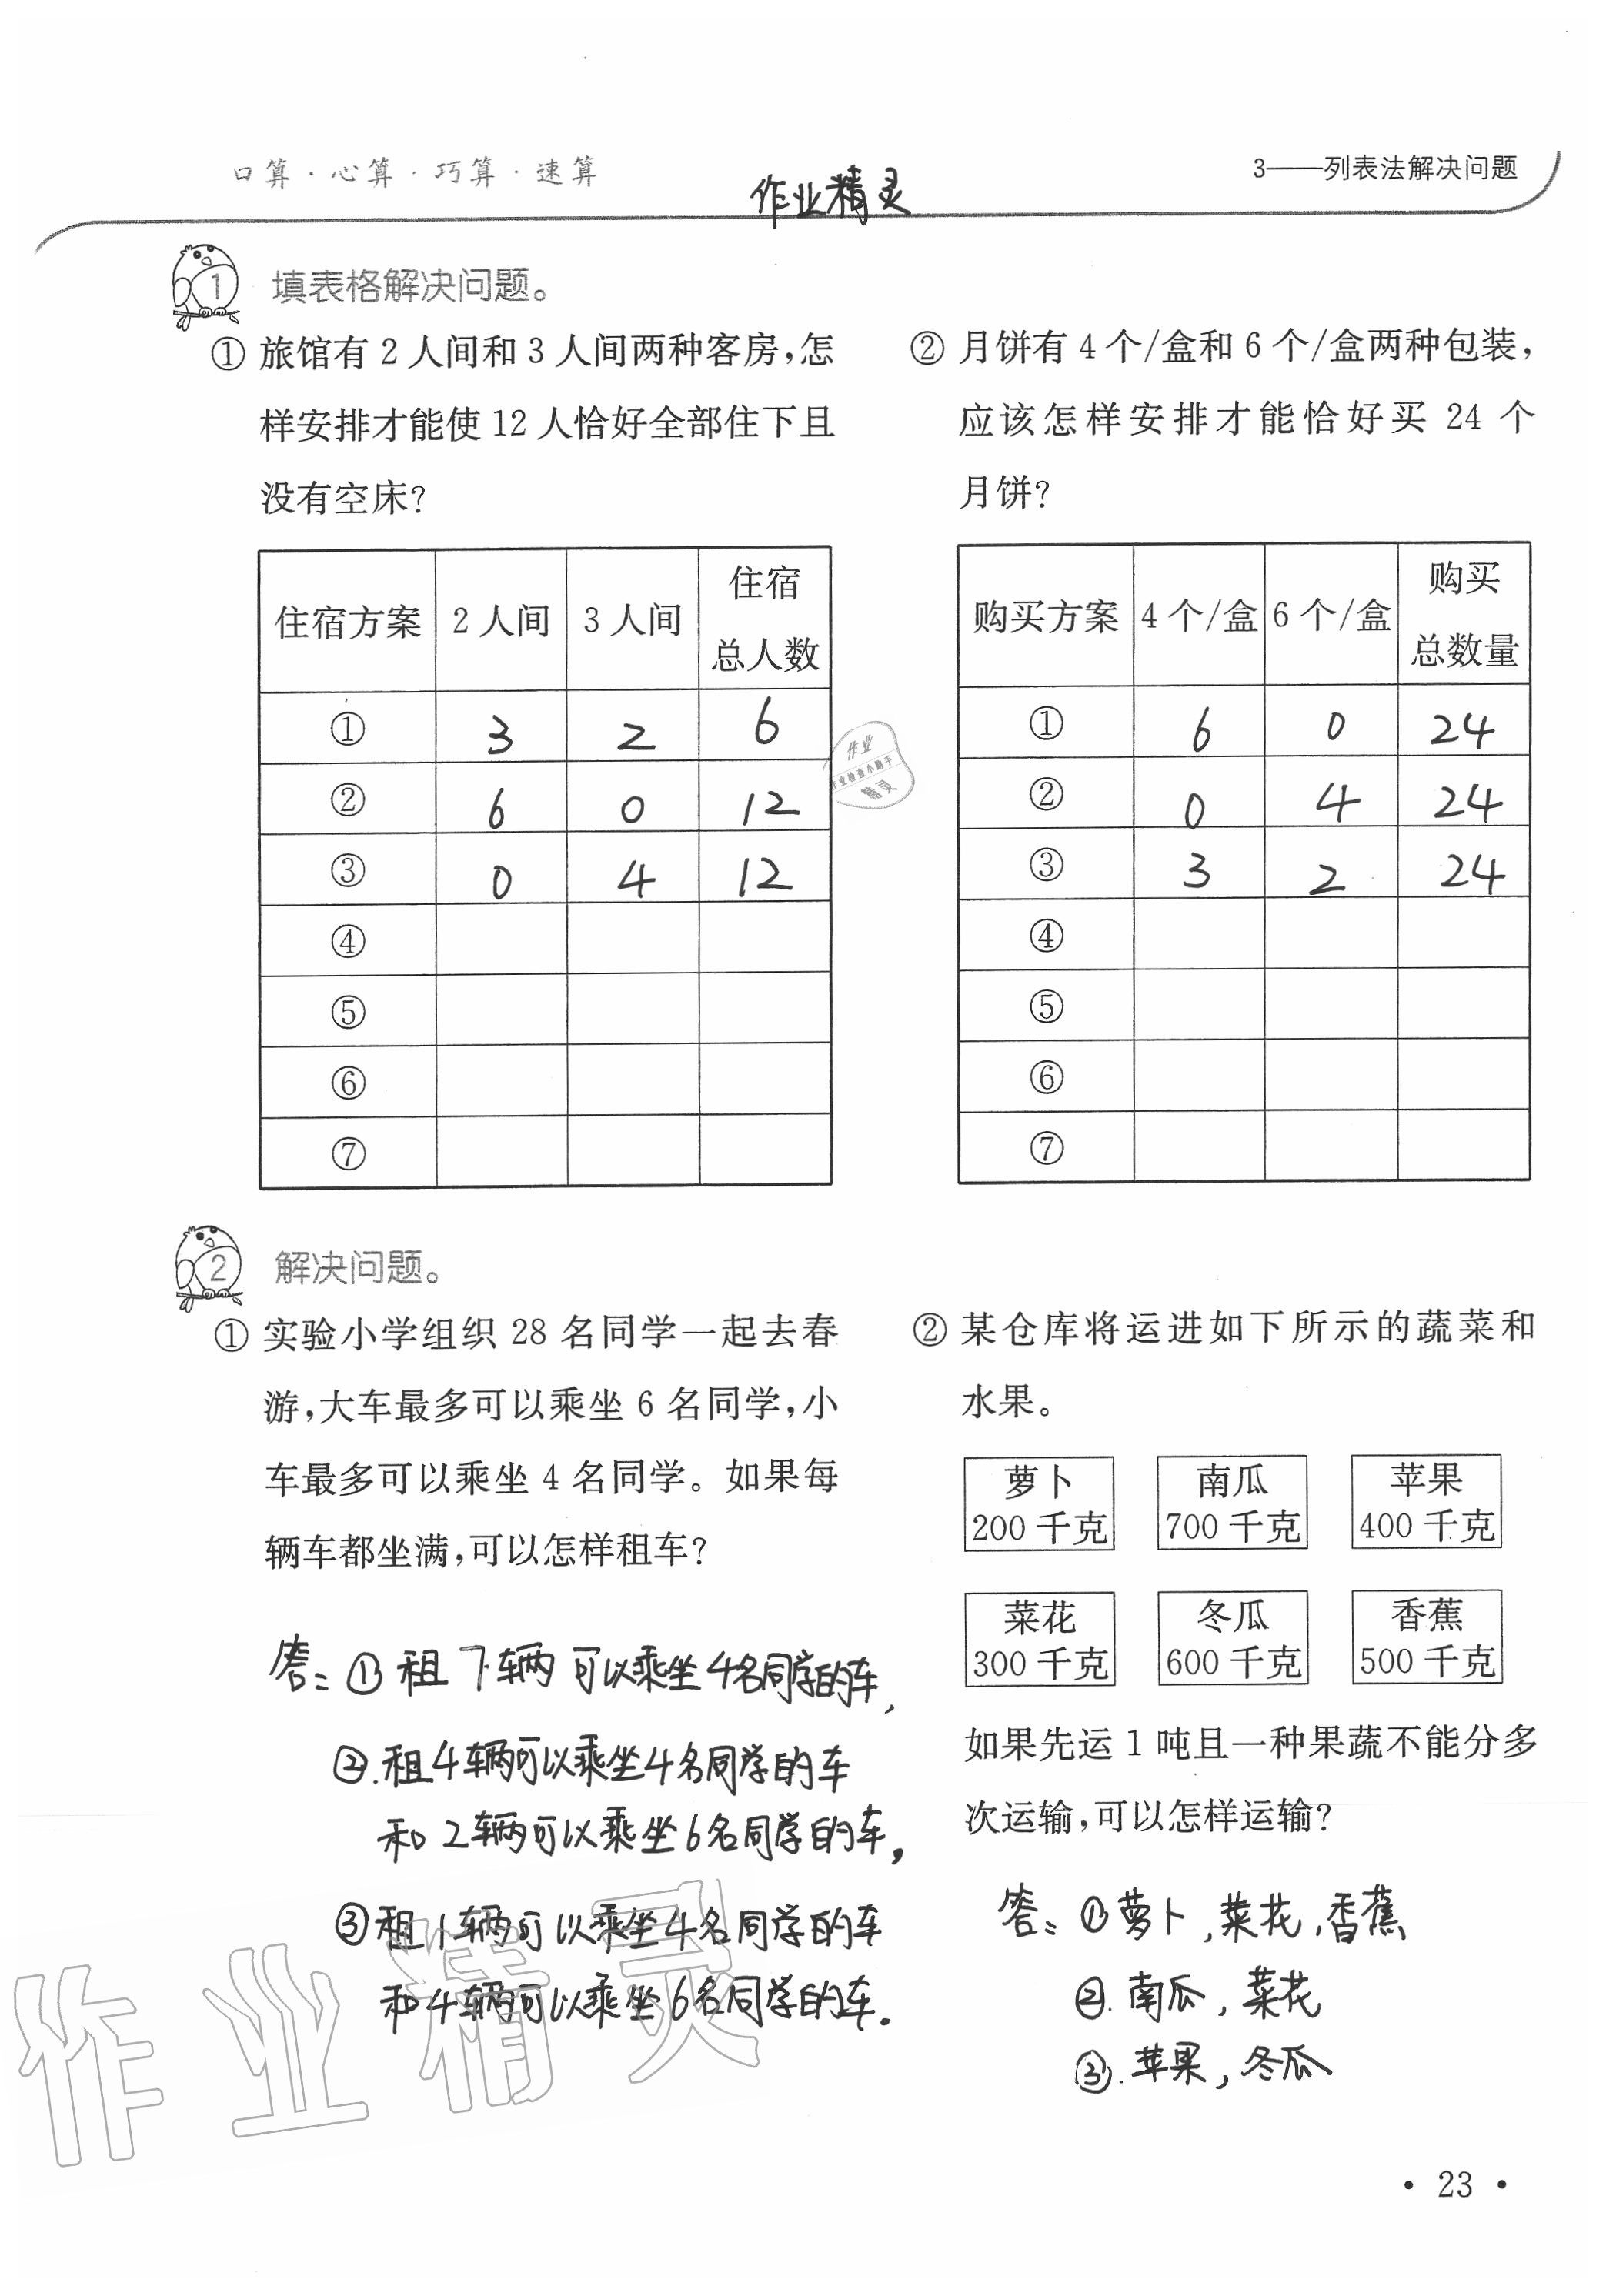 口算·心算·巧算·速算
3——列表法解决问题
作业精灵
1 填表格解决问题。
① 旅馆有 2 人间和 3 人间两种客房,怎
样安排才能使 12 人恰好全部住下且
没有空床?
住宿方案 2 人间 3 人间 住宿
总人数
① 3 2 6
② 6 0 12
③ 0 4 12
④
⑤
⑥
⑦
② 月饼有 4 个/盒和 6 个/盒两种包装,
应该怎样安排才能恰好买 24 个
月饼?
购买方案 4 个/盒 6 个/盒 购买
总数量
① 6 0 24
② 0 4 24
③ 3 2 24
④
⑤
⑥
⑦
作业
作业检查小助手
精灵
2 解决问题。
① 实验小学组织 28 名同学一起去春
游,大车最多可以乘坐 6 名同学,小
车最多可以乘坐 4 名同学。如果每
辆车都坐满,可以怎样租车?
答: ①租7辆可以乘坐4名同学的车,
②.租4辆可以乘坐4名同学的车
和2辆可以乘坐6名同学的车,
③租1辆可以乘坐4名同学的车
和4辆可以乘坐6名同学的车.
② 某仓库将运进如下所示的蔬菜和
水果。
萝卜 南瓜 苹果
200 千克 700 千克 400 千克
菜花 冬瓜 香蕉
300 千克 600 千克 500 千克
如果先运 1 吨且一种果蔬不能分多
次运输,可以怎样运输?
答: ①萝卜,菜花,香蕉
②.南瓜,菜花
③.苹果,冬瓜
作业精灵
· 23 ·